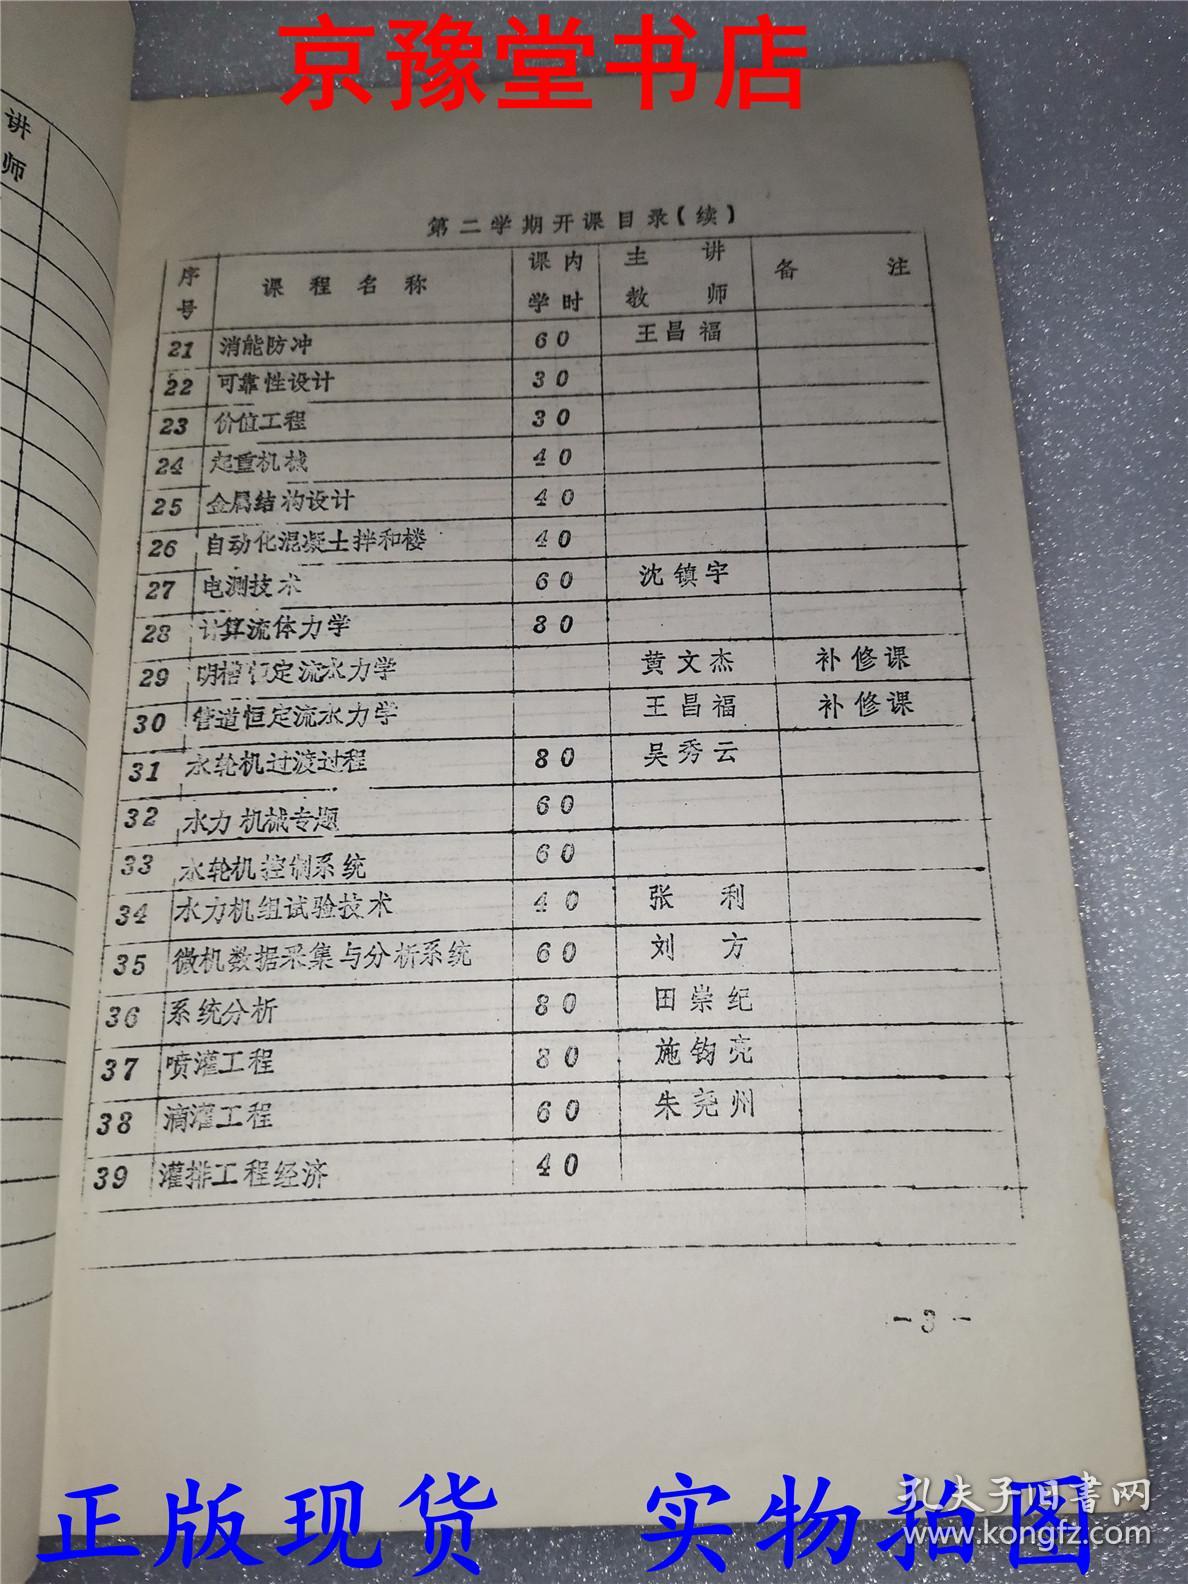 京豫堂书店
讲
师
第二学期开课目录(续)
序号 课程名称 课内学时 主讲教师 备注
21 消能防冲 60 王昌福
22 可靠性设计 30
23 价值工程 30
24 起重机械 40
25 金属结构设计 40
26 自动化混凝土拌和楼 40
27 电测技术 60 沈镇宇
28 计算流体力学 80
29 明槽恒定流水力学 黄文杰 补修课
30 管道恒定流水力学 王昌福 补修课
31 水轮机过渡过程 80 吴秀云
32 水力机械专题 60
33 水轮机控制系统 60
34 水力机组试验技术 40 张利
35 微机数据采集与分析系统 60 刘方
36 系统分析 80 田崇纪
37 喷灌工程 80 施钧亮
38 滴灌工程 60 朱尧州
39 灌排工程经济 40
-3-
正版现货 实物拍图
孔夫子旧書网
www.kongfz.com